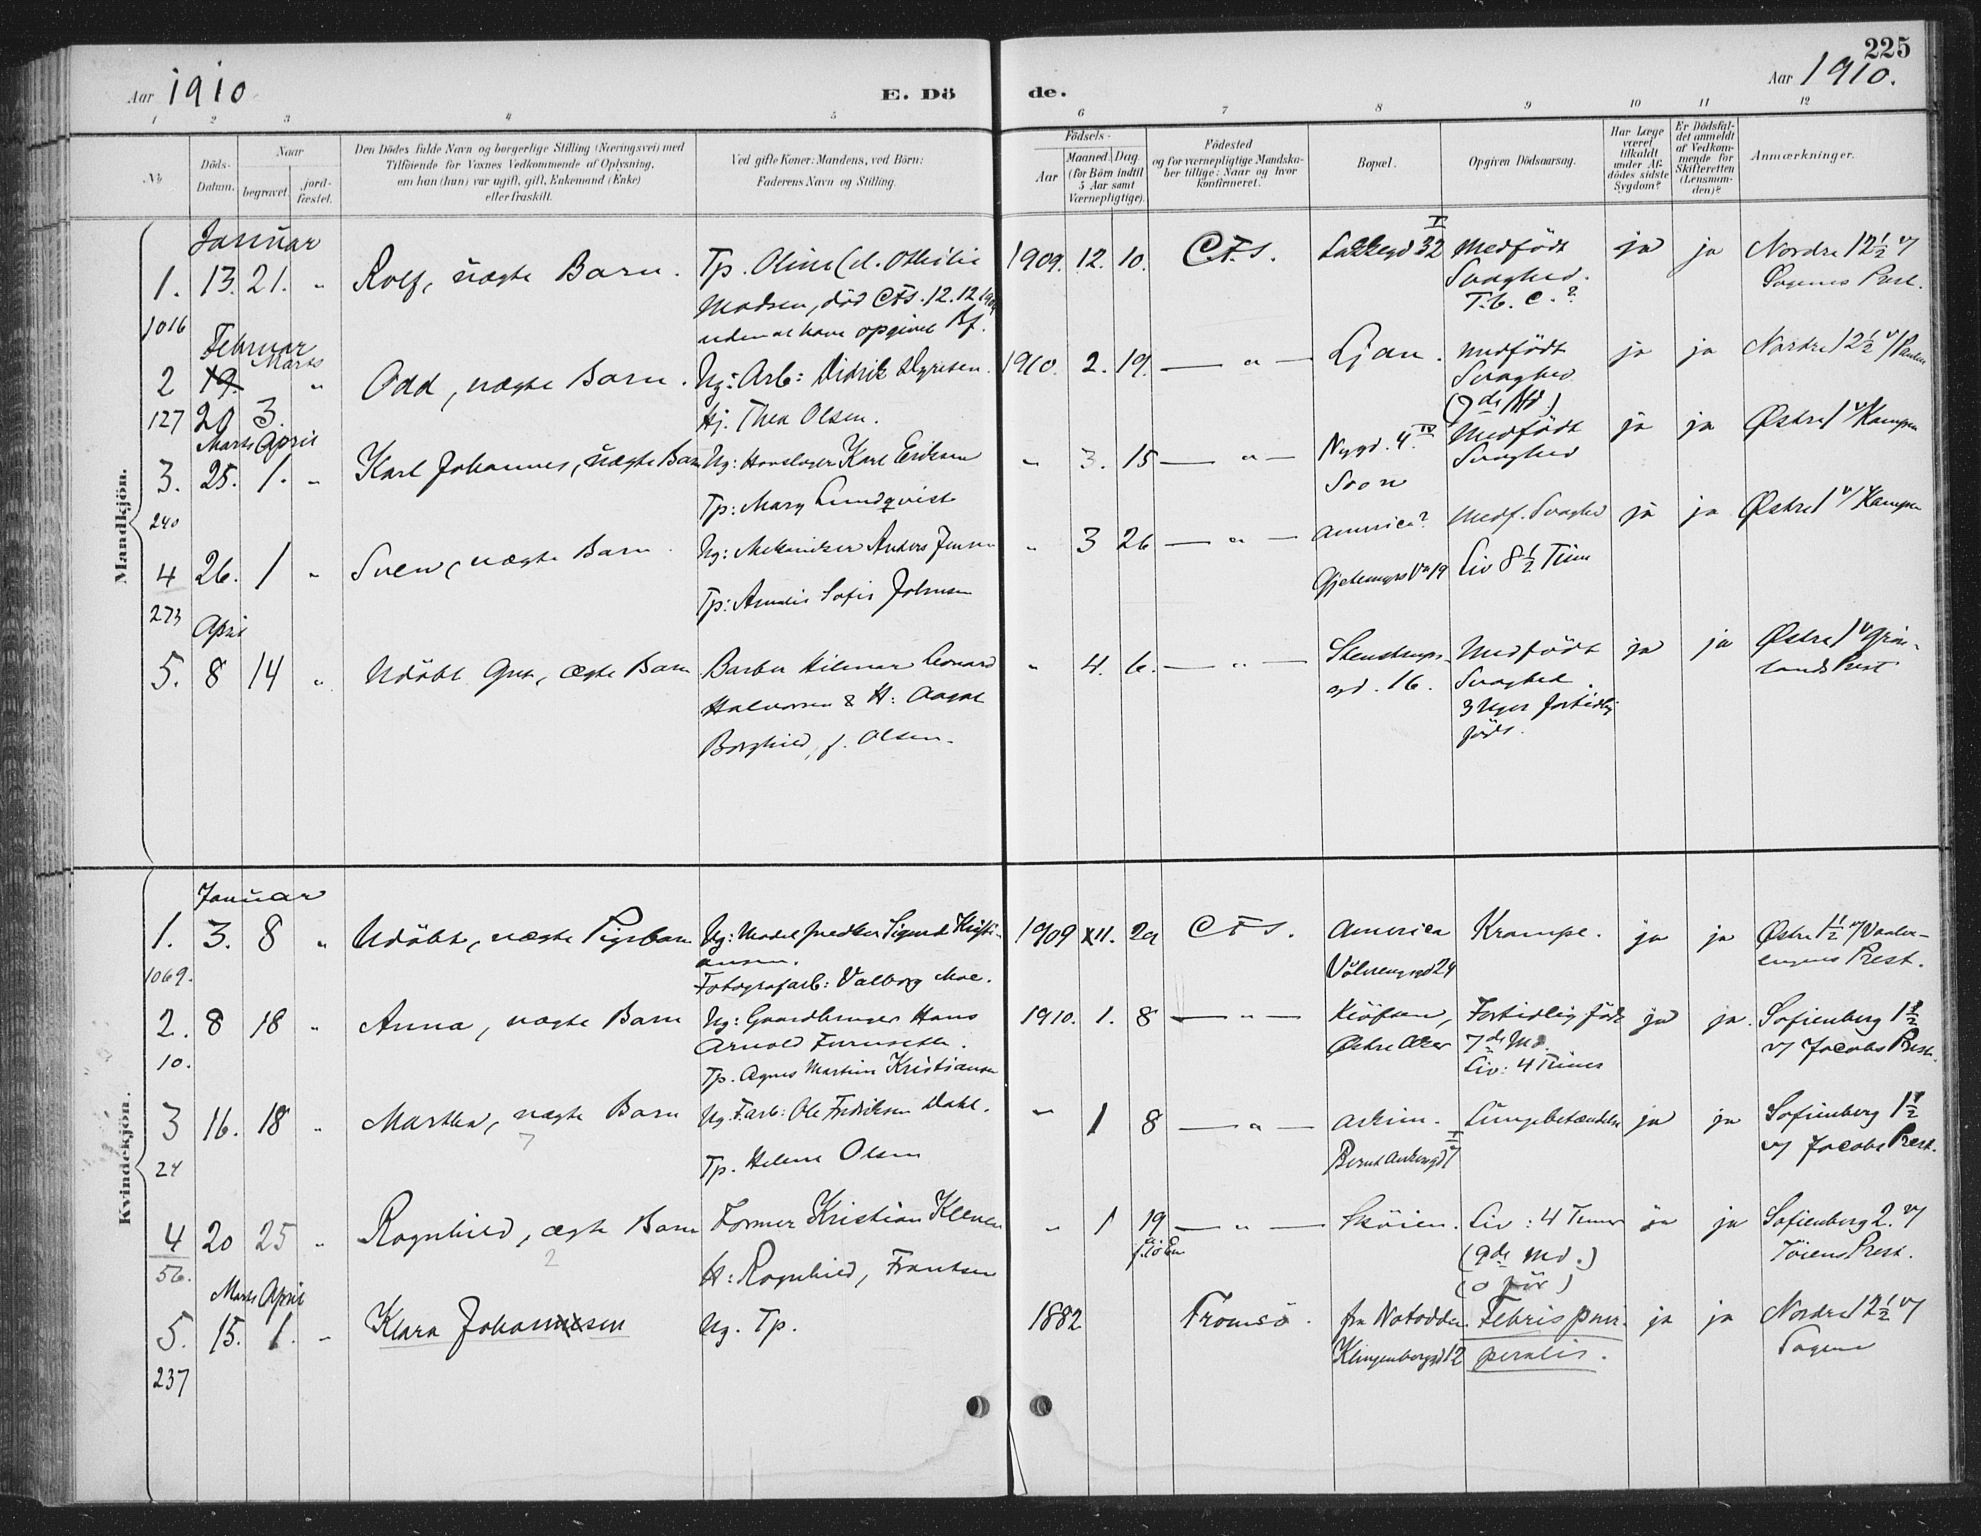 225
Aar 1910
E. Dö
de.
Aar 1910.
1 2 3 4 5 6 7 8 9 10 11 12
No
Döds-
Datum.
Naar
begravet.
jord-
fæstet.
Den Dödes fulde Navn og borgerlige Stilling (Næringsvei) med
Tilföiende for Voxnes Vedkommende af Oplysning,
om han (hun) var ugift, gift, Enkemand (Enke)
eller fraskilt.
Ved gifte Koner: Mandens, ved Börn:
Faderens Navn og Stilling.
Födsels-
Aar
Maaned. Dag
(for Börn indtil
5 Aar samt
Værnepligtige).
Födested
og for værnepligtige Mandska-
ber tillige: Naar og hvor
konfirmeret.
Bopæl.
Opgiven Dödsaarsag.
Har Læge
været
tilkaldt
under Af-
dödes sidste
Sygdom?
Er Dödsfal-
det anmeldt
af Vedkom-
mende for
Skifteretten
(Lensman-
den)?
Anmærkninger.
Mandkjön.
Januar
1. 13. 21. " Rolf, uægte Barn. Tp. Oline 1909. 12. 10. C.F.S. 32 I Medfödt ja ja Nordre 12 ½ v/
Madsen, död CFS. 12.12. Svaghed. Sagenes Prest.
1016 uden at have opgivet Bf. T.b.c.?
Februar
Marts
2 19. " Odd, uægte Barn. Ug: Arb: Didrik 1910. 2. 19. — " — Ljan. Medfödt ja ja Nordre 12 ½ v/
Svaghed
127 20 3. Hj. Thea Olsen. (7de Md)
Marts April
3. 25. 1. " Karl Johannes, uægte Barn Ug: Karl Eriksen " 3. 15 — " — Nygd. 4 IV Medfödt ja ja Østre 1 v/Kampen
Svaghed
240 Tp: Mary Lundqvist Soon
4 26. 1 " Sven, uægte Barn. Ug: Mekaniker Anders Jensen " 3 26 — " — America? Medf. Svaghed ja ja Østre 1 v/Kampen
273 Tp: Amalie Sofie Johnsen 19 Liv 8 ½ Time
April
5. 8 14 " Udöbt Gut, ægte Barn Barber Hilmar Leonard " 4. 6. — " — Stenstrups- Medfödt ja ja Østre 1 v/Grön-
Halvorsen & H: Aagot gd. 16. Svaghed. lands Prest
Borghild, f. Olsen. 3 Uger fortidlig
födt.
Kvindekjön.
Januar
1. 3. 8 " Udöbt, uægte Pigebarn Ug: Sigurd Kristi- 1909 XII. 29 CFS. America Krampe. ja ja Østre 1 ½ v/Vaaler-
ansen. engens Prest.
1069. Fotografarb: Valborg Moe. 24
2. 8 18 " Anna, uægte Barn Ug: Gaardbruger Hans 1910. 1. 8 — " — Klöften, Fortidlig födt ja ja. Sofienberg 1 ½
Arnold Furuseth. Østre Aker 7de Md. v/ Jacobs Prest.
10. Tp. Agnes Martine Kristiansen Liv: 4 Timer
3 16. 18 " Martha, uægte Barn Ug. Farb: Ole Fredriksen Dahl. " 1 8 — " — Lungebetændelse ja ja Sofienberg 1 ½
7 v/ Jacobs Prest.
24 Tp. Helene Olsen Bernt Ankersgd
4 20 25 " Ragnhild, ægte Barn Former Kristian " 1 19 — " — Sköien. Liv: 4 Timer ja ja Sofienberg 2. v/
2 (9de Md.) Töiens Prest.
56. H: Ragnhild, Frantsen
Marts April
5. 15. 1. " Klara Johannesen Ug. Tp. 1882 Tromsö. fra Notodden. Febris puer- ja ja Nordre 12 ½ v/
Klingenbergsgd 12 peralis. Sagene
237